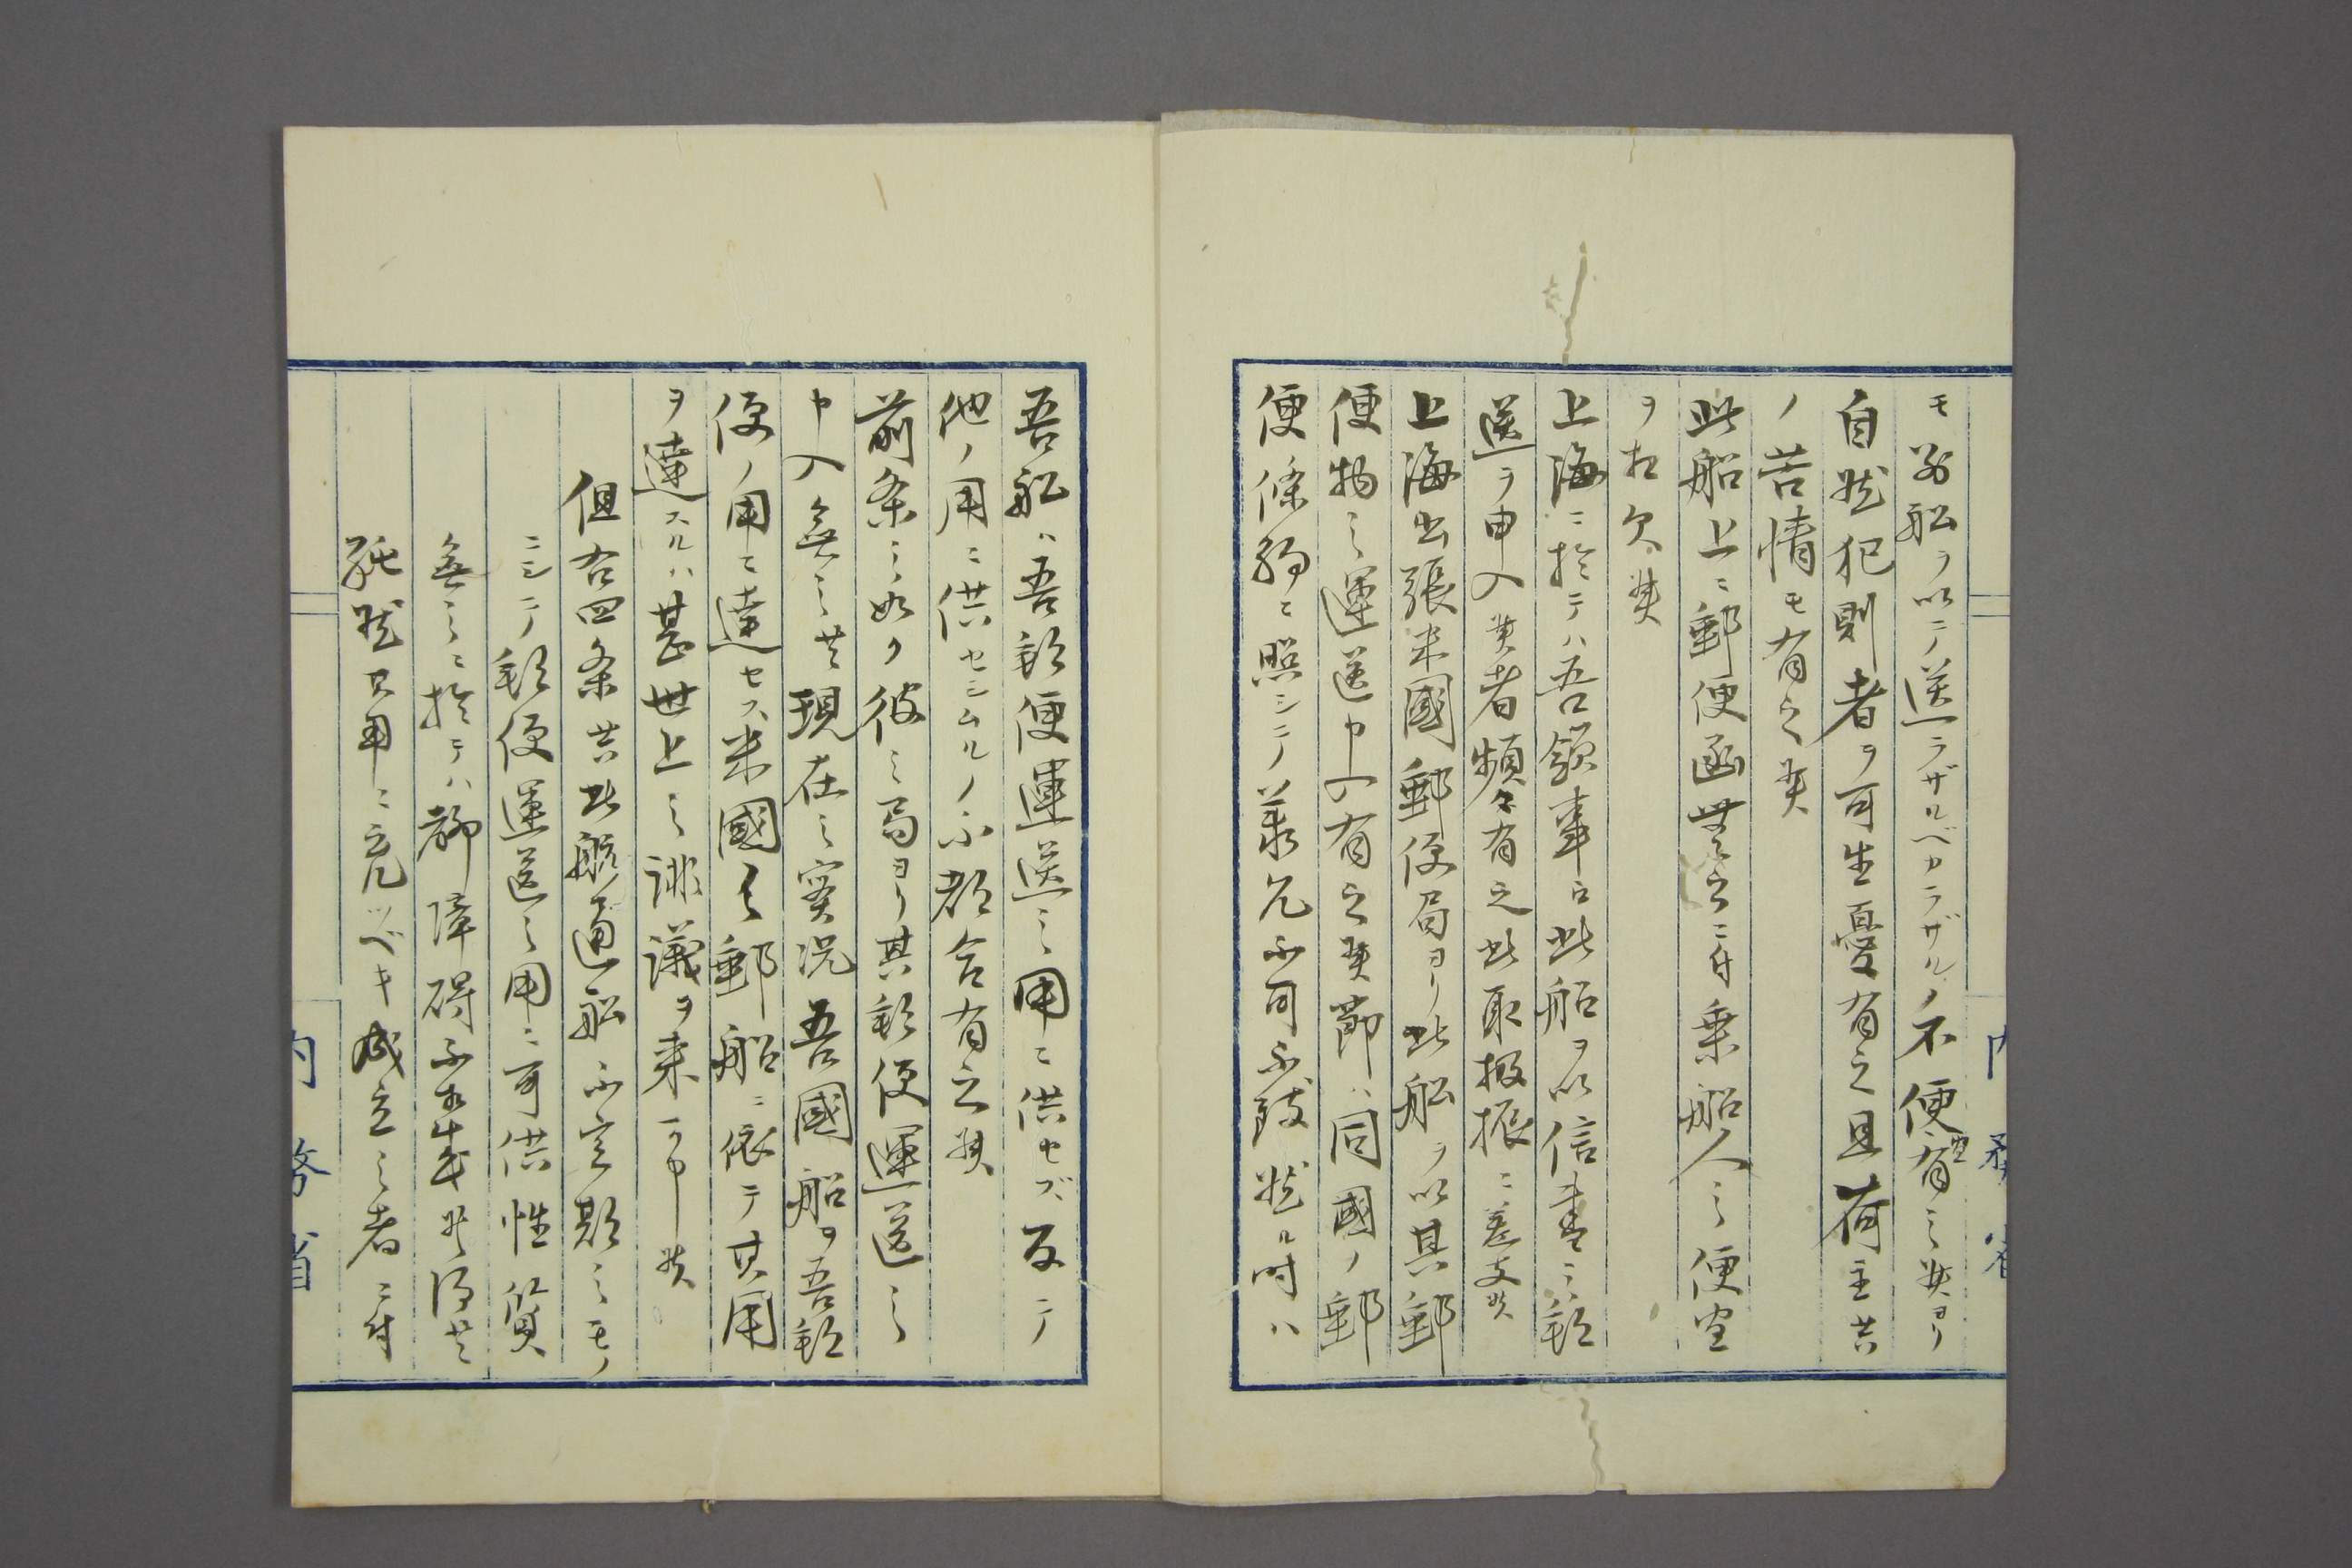 モ別船ヲ以テ送ラザルベカラザルノ不便有之候ヨリ
自然犯則者ヲ可生憂有之且荷主共
ノ苦情モ有之候
此船上ニ郵便函無之ニ付乗船人之便宜
ヲ相欠候
上海ニ於テハ吾領事ニ此船ヲ以信書之郵
送ヲ申入候者頻々有之此取扱振ニ差支候
上海出張米國郵便局ヨリ此船ヲ以其郵
便物之運送申入有之候節ハ同國ノ郵
便條約ニ照シテ承允不可不致然ル時ハ
吾船ハ吾郵便運送之用ニ供セズ反テ
他ノ用ニ供セシムルノ不都合有之候
前条之如ク彼之局ヨリ其郵便運送之
申入無之共現在之実況吾國船ヲ吾郵
便ノ用ニ達セス米國之郵船ニ依テ其用
ヲ達スルハ甚世上之誹議ヲ来可申候
但右四条共此船通船不定期之モノ
ニシテ郵便運送之用ニ可供性質
無之ニ於テハ都障碍不相成候得共
純然只用ニ充ツベキ成立之者ニ付
内務省
内務省